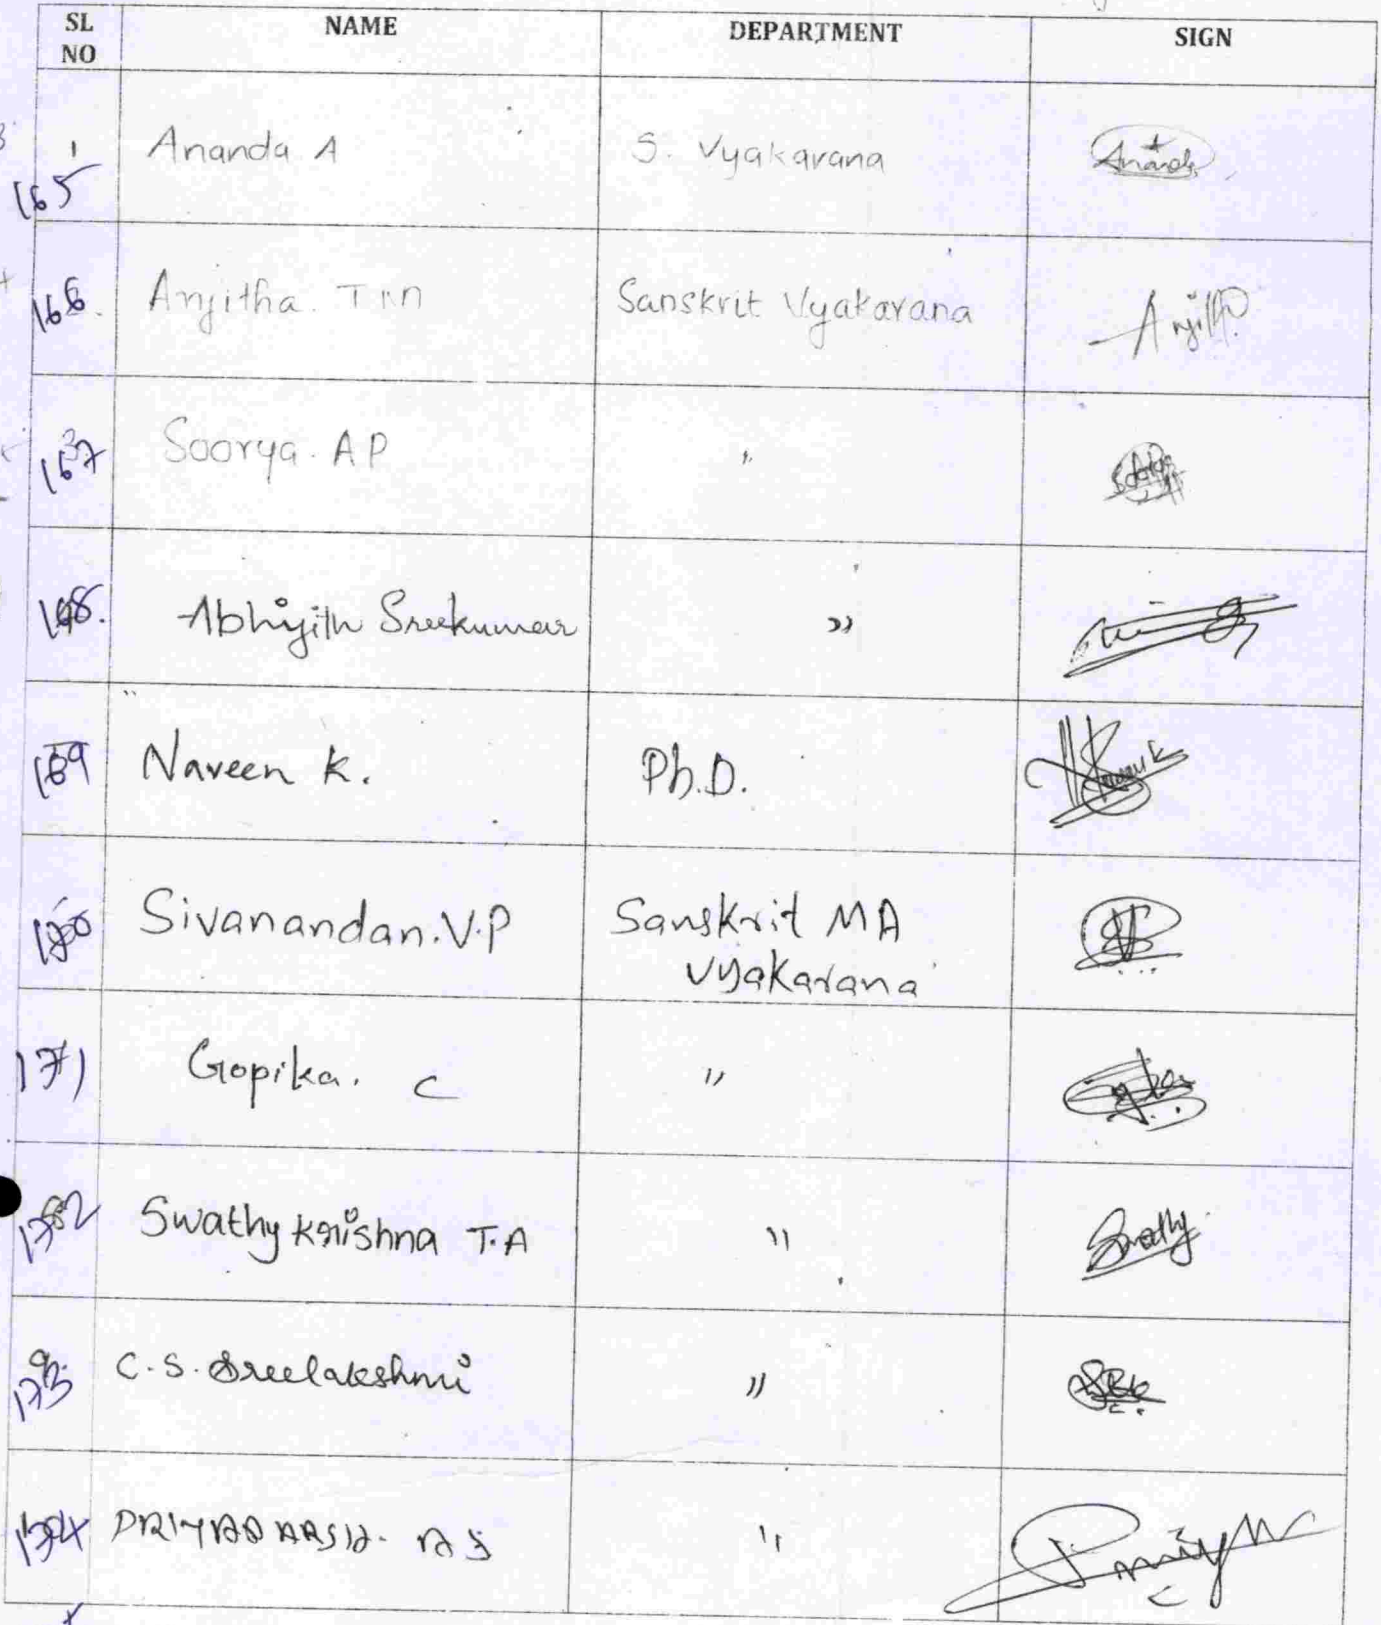 SL NO NAME DEPARTMENT SIGN
1 165 Ananda A S. Vyakarana Ananda
166. Anjitha. T.N Sanskrit Vyakarana Anjitha
167 Soorya. A P " Soorya
168. Abhijith Sreekumar "
169 Naveen K. Ph.D.
170 Sivanandan. V.P Sanskrit MA
Vyakarana
171 Gopika. C "
172 Swathy Krishna T.A " Swathy
173 C.S. Sreelakshmi "
174 "